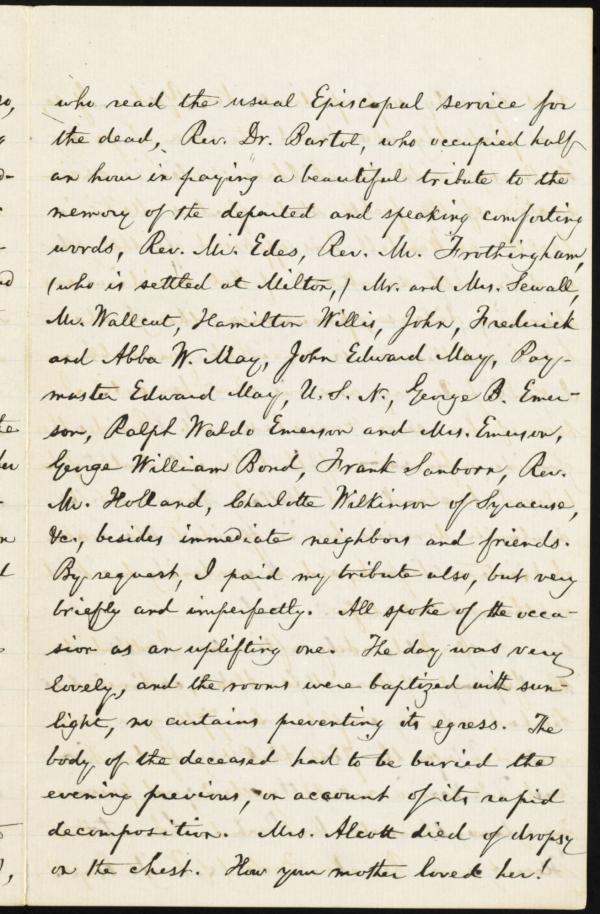 who read the usual Episcopal service for
the dead, Rev. Dr. Bartol, who occupied half
an hour in paying a beautiful tribute to the
memory of the departed and speaking comforting
words, Rev. Mr. Edes, Rev. Mr. Frothingham,
(who is settled at Milton,) Mr. and Mrs. Sewall,
Mr. Wallcut, Hamilton Willis, John, Frederick
and Abba W. May, John Edward May, Pay-
master Edward May, U. S. N., George B. Emer-
son, Ralph Waldo Emerson and Mrs. Emerson,
George William Bond, Frank Sanborn, Rev.
Mr. Holland, Charlotte Wilkinson of Syracuse,
&c., besides immediate neighbors and friends.
By request, I paid my tribute also, but very
briefly and imperfectly. All spoke of the occa-
sion as an uplifting one. The day was very
lovely, and the rooms were baptized with sun-
light, no curtains preventing its egress. The
body of the deceased had to be buried the
evening previous, on account of its rapid
decomposition. Mrs. Alcott died of dropsy
on the chest. How your mother loved her!